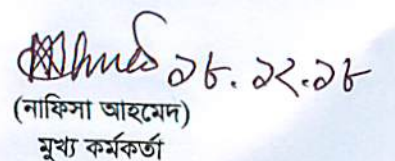 Ahmed ১৮.১২.১৮
(নাফিসা আহমেদ)
মুখ্য কর্মকর্তা